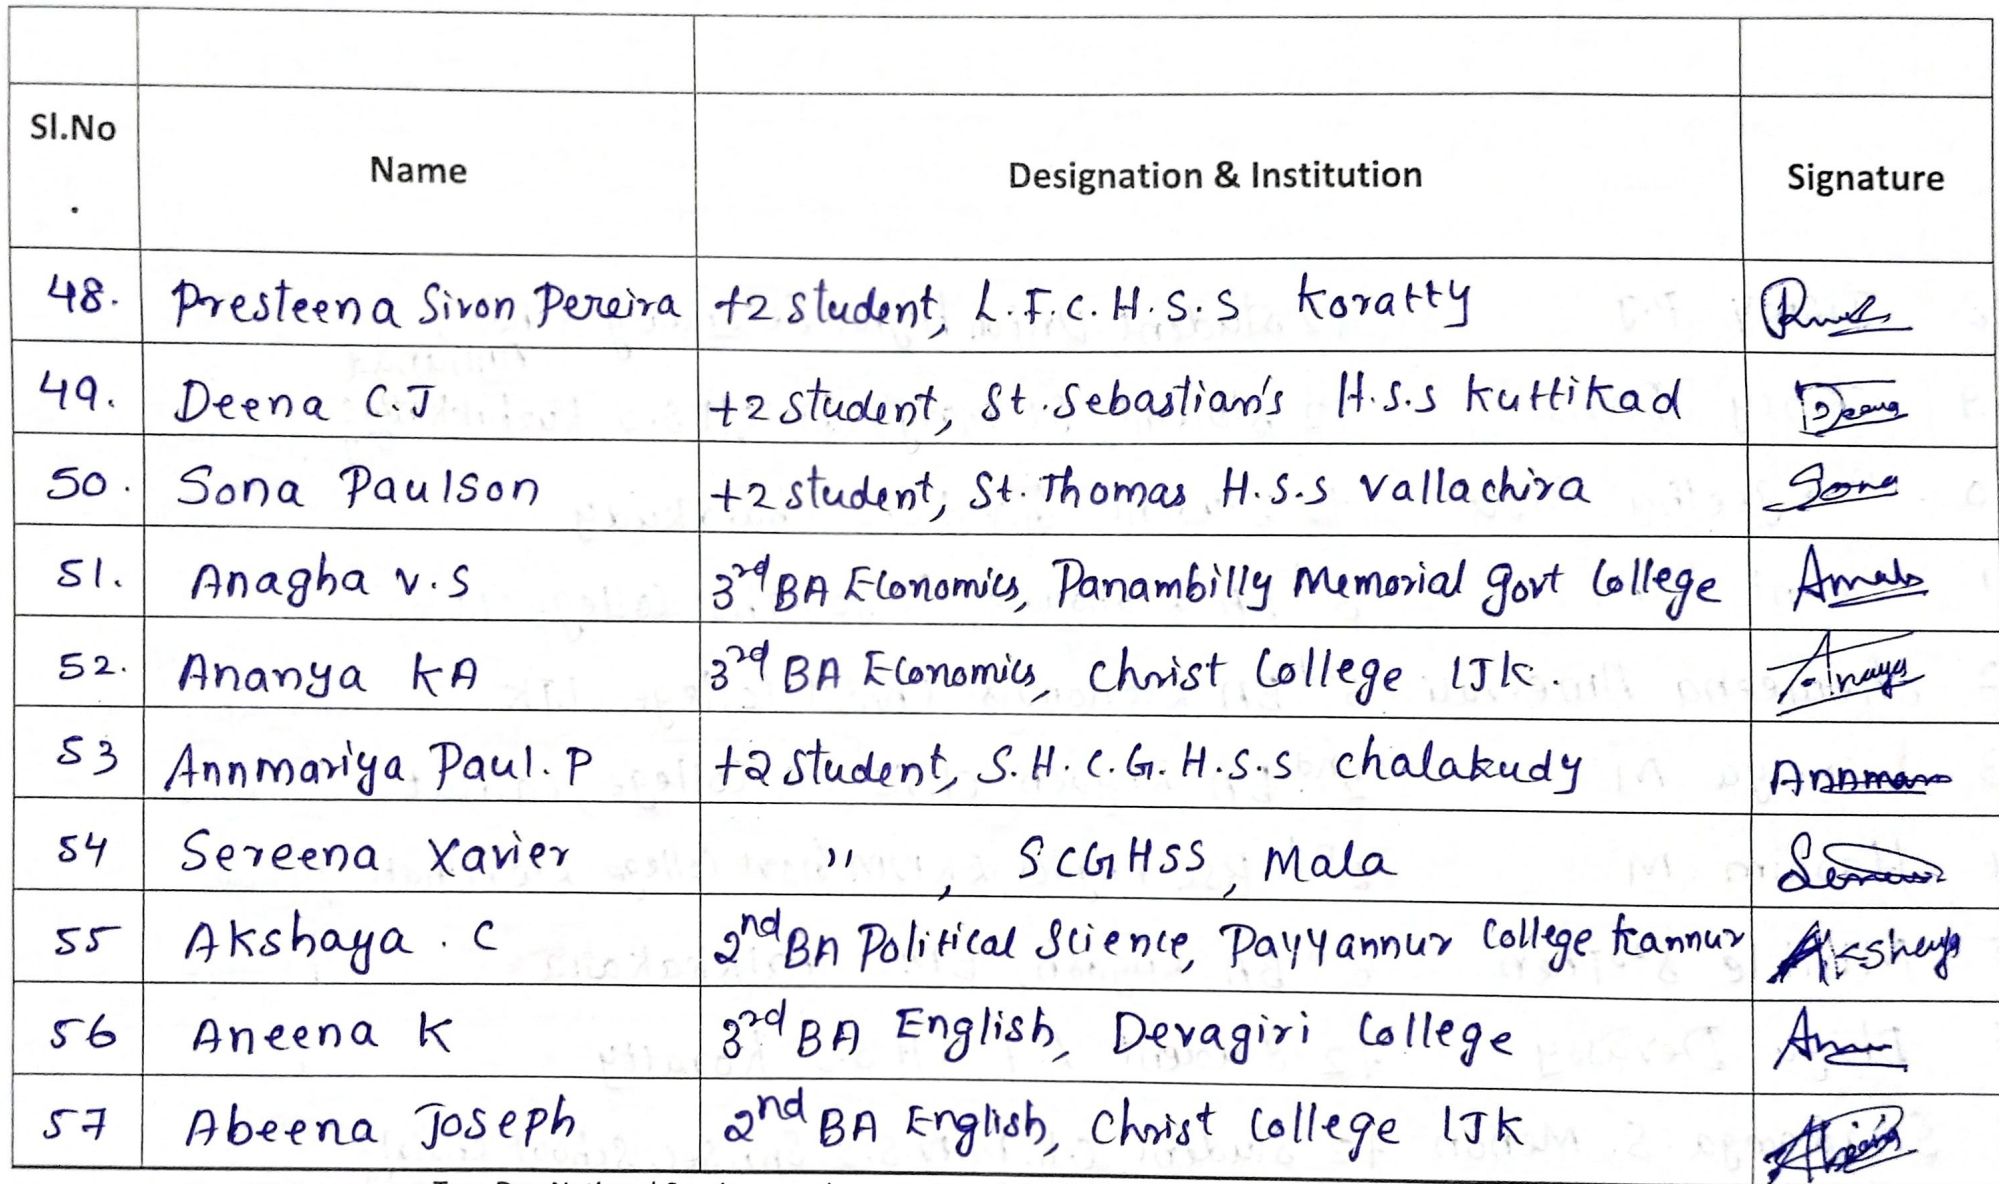 Sl.No
.
Name
Designation & Institution
Signature
48. Presteena Siron Pereira +2 student, L.F.C.H.S.S Koratty
49. Deena C.J +2 student, St. Sebastian's H.S.S Kuttikad Deena
50. Sona Paulson +2 student, St. Thomas H.S.S Vallachira Sona
51. Anagha V.S 3rd BA Economics, Panambilly Memorial Govt College
52. Ananya KA 3rd BA Economics, Christ College IJK.
53 Annmariya Paul. P +2 student, S.H.C.G.H.S.S Chalakudy
54 Sereena Xavier ", SCGHSS, Mala
55 Akshaya . C 2nd BA Political Science, Payyannur College Kannur Akshaya
56 Aneena K 3rd BA English, Devagiri College
57 Abeena Joseph 2nd BA English, Christ College IJK